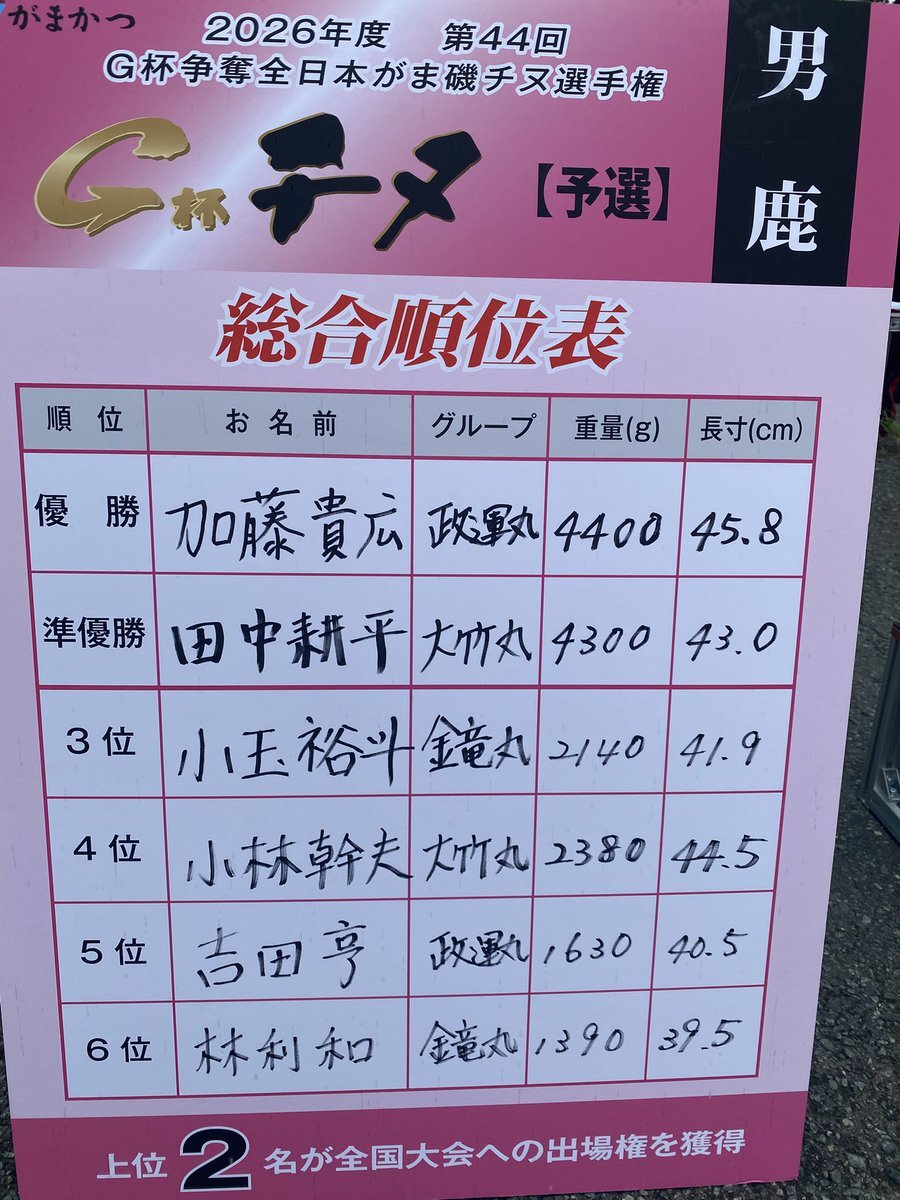 がまかつ
2026年度 第44回
G杯争奪全日本がま磯チヌ選手権
G杯チヌ【予選】
男鹿
総合順位表
順位 お名前 グループ 重量(g) 長寸(cm)
優勝 加藤貴広 政運丸 4400 45.8
準優勝 田中耕平 大竹丸 4300 43.0
3位 小玉裕斗 鐘竜丸 2140 41.9
4位 小林幹夫 大竹丸 2380 44.5
5位 吉田亨 政運丸 1630 40.5
6位 林利和 鐘竜丸 1390 39.5
上位2名が全国大会への出場権を獲得